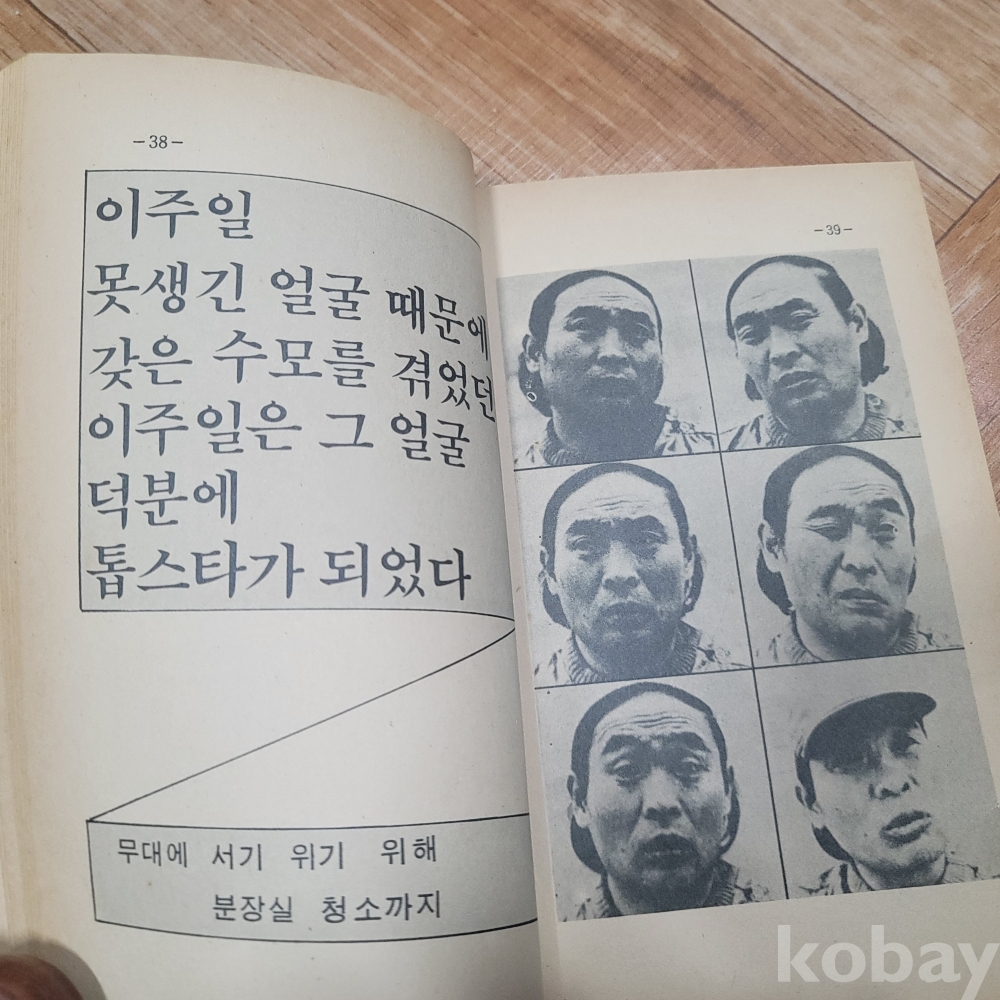 -38-
이주일
못생긴 얼굴 때문에
갖은 수모를 겪었던
이주일은 그 얼굴
덕분에
톱스타가 되었다
무대에 서기 위기 위해
분장실 청소까지
-39-
kobay